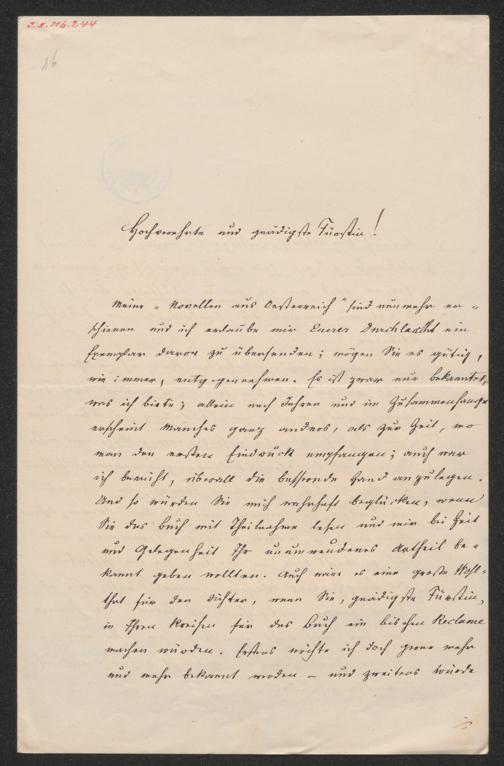 I.N. 016.244
16
Hochverehrte und gnädigste Fürstin!
Meine „Novellen aus Oesterreich" sind nunmehr er-
schienen und ich erlaube mir Euerer Durchlaucht ein
Exemplar davon zu übersenden; mögen Sie es gütig,
wie immer, entgegennehmen. Es ist zwar nur Bekanntes,
was ich biete; allein nach Jahren und im Zusammenhange
erscheint Manches ganz anders, als zur Zeit, wo
man den ersten Eindruck empfangen; auch war
ich bemüht, überall die bessernde Hand anzulegen.
Und so würden Sie mich wahrhaft beglücken, wenn
Sie das Buch mit Theilnahme lesen und mir bei Zeit
und Gelegenheit Ihr unumwundenes Urtheil be-
kannt geben wollten. Auch wäre es eine große Wohl-
that für den Dichter, wenn Sie, gnädigste Fürstin,
in Ihren Kreisen für das Buch ein bischen Reclame
machen würden. Erstens möchte ich doch gerne mehr
und mehr bekannt werden – und zweitens würde